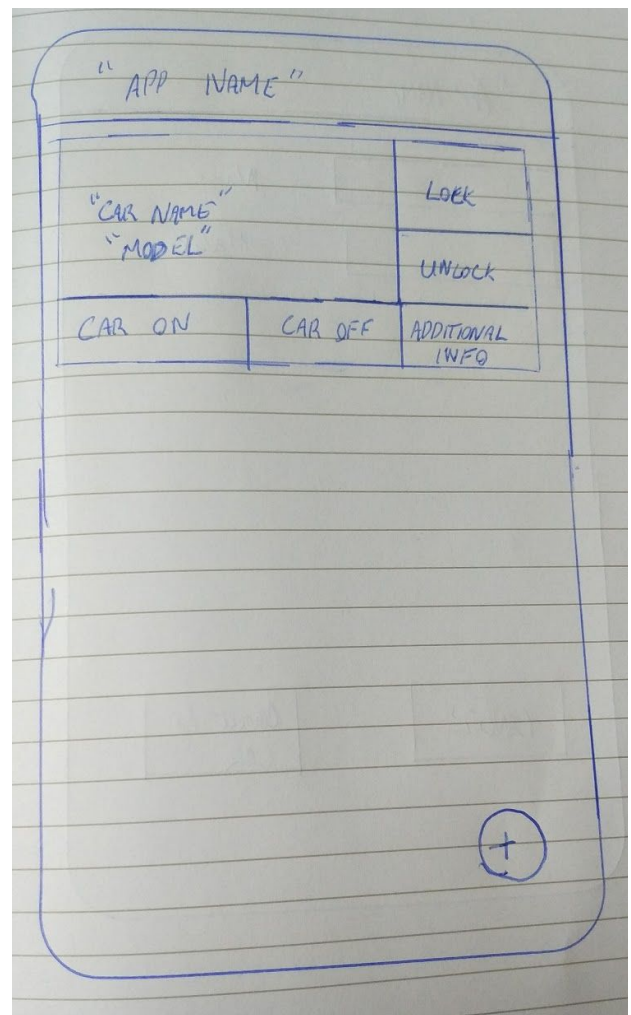 "APP NAME"
"CAR NAME"
"MODEL"
LOCK
UNLOCK
CAR ON
CAR OFF
ADDITIONAL
INFO
+